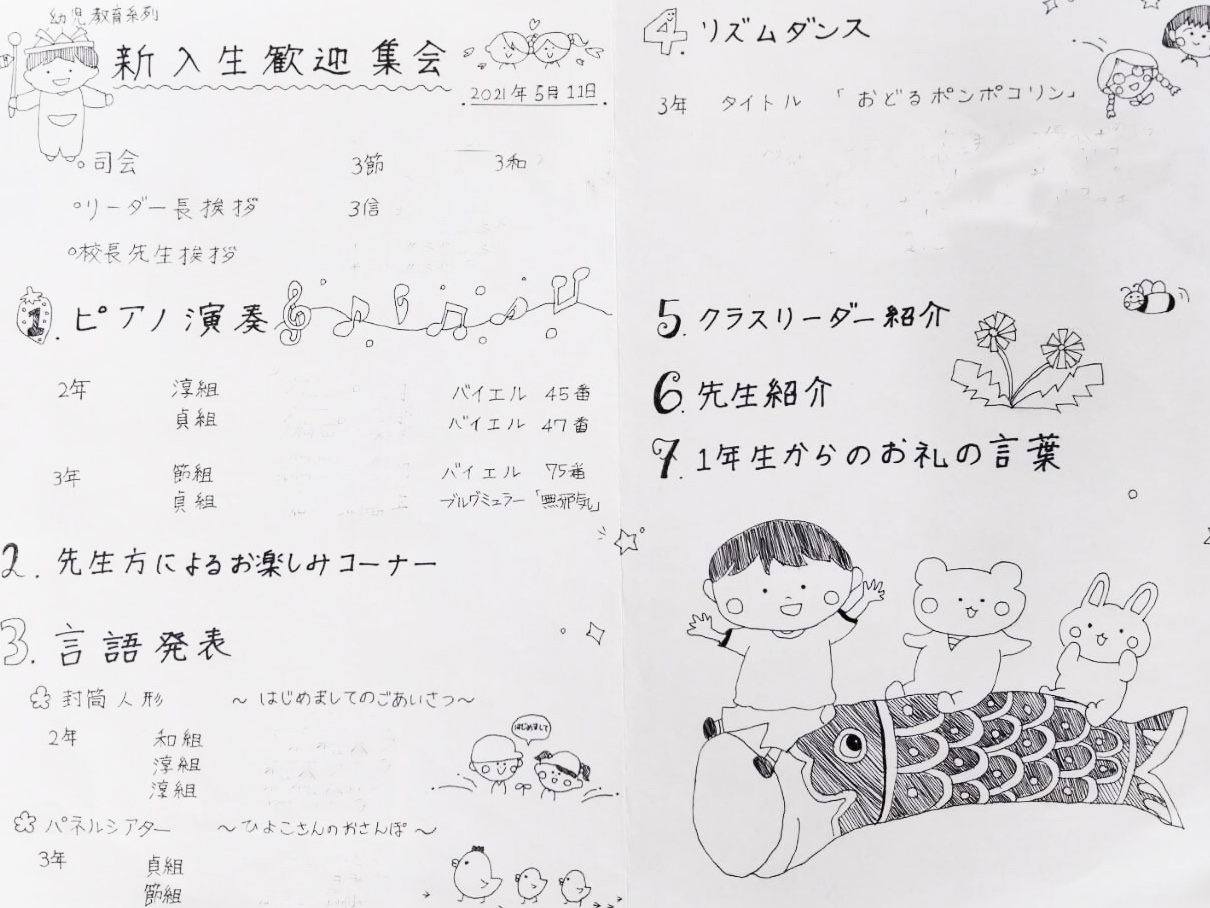 幼児教育系列
新入生歓迎集会
2021年5月11日
○司会 3節 3和
○リーダー長挨拶 3信
○校長先生挨拶
1. ピアノ演奏
2年 淳組 バイエル 45番
貞組 バイエル 47番
3年 節組 バイエル 75番
貞組 ブルグミュラー「無邪気」
2. 先生方によるお楽しみコーナー
3. 言語発表
封筒人形 ～はじめましてのごあいさつ～
はじめまして
2年 和組
淳組
淳組
パネルシアター ～ひよこさんのおさんぽ～
3年 貞組
節組
4. リズムダンス
3年 タイトル 「おどるポンポコリン」
5. クラスリーダー紹介
6. 先生紹介
7. 1年生からのお礼の言葉